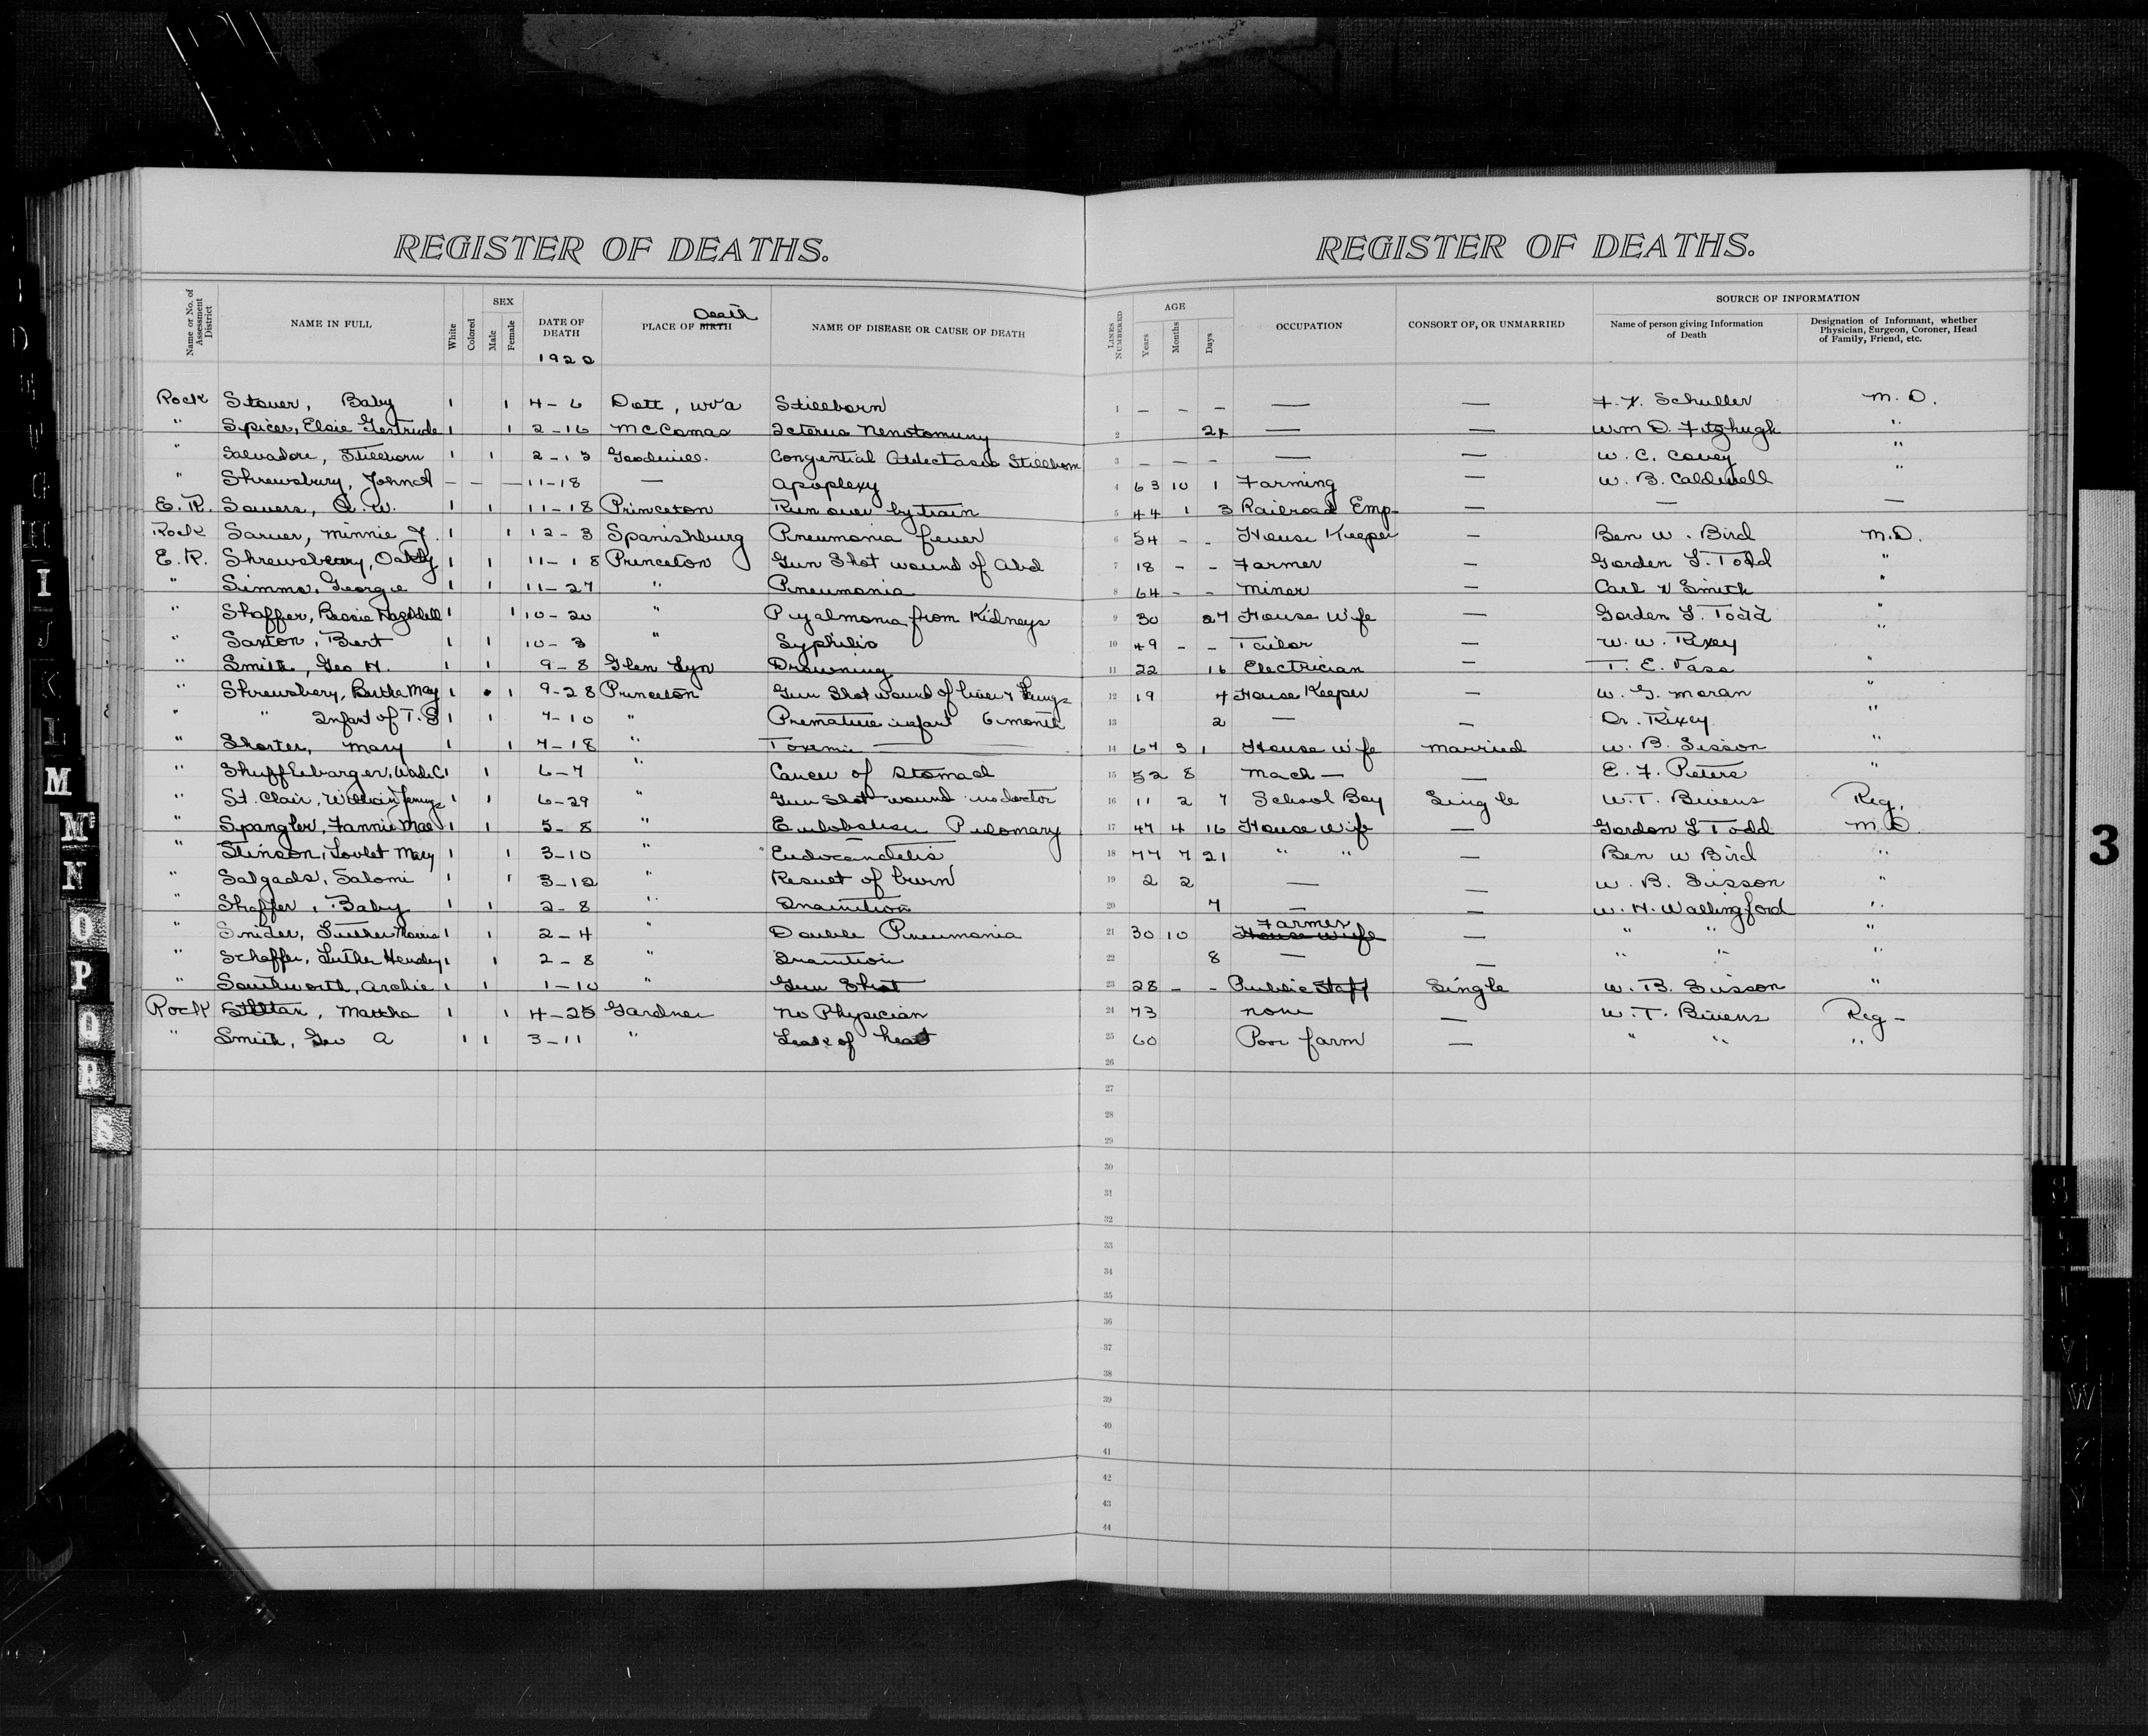 REGISTER OF DEATHS.
REGISTER OF DEATHS.
Name or No. of Assessment District
NAME IN FULL
White
Colored
SEX
Male
Female
DATE OF DEATH
1922
PLACE OF BIRTH Death
NAME OF DISEASE OR CAUSE OF DEATH
LINES NUMBERED
AGE
Years
Months
Days
OCCUPATION
CONSORT OF, OR UNMARRIED
SOURCE OF INFORMATION
Name of person giving Information of Death
Designation of Informant, whether Physician, Surgeon, Coroner, Head of Family, Friend, etc.
Rock Stover, Baby 1 1 4-6 Dott, wva Stillborn 1 – – – — — Schuller M.D.
" Spicer, Elsie Gertrude 1 1 2-16 McComas Icterus 2 — — Wm D. Fitzhugh "
" Salvadore, Stillborn 1 1 2-13 Goodwill. Congential Stillborn 3 – – – — — W. C. Covey "
" Shrewsbury, John A – – – 11-18 — Apoplexy 4 63 10 1 Farming — W. B. Caldwell "
E. R. Sowers, 1 1 11-18 Princeton Run over by train 5 44 1 3 Railroad Emp- — — —
Rock Sarver, Minnie F. 1 1 12-3 Spanishburg Pneumonia fever 6 54 - - House Keeper — Ben W. Bird M.D.
E. R. 1 1 11-18 Princeton Gun Shot wound of Abd 7 18 - - Farmer — Gorden L. Todd "
" Simms, George 1 1 11-27 " Pneumonia 8 64 - - Miner — Carl Smith "
" Shaffer, Bessie 1 1 10-20 " from Kidneys 9 30 27 House Wife — Gorden L. Todd "
" Saxton, Bert 1 1 10-3 " Syphilis 10 49 - - Tailor — W. W. Rixey "
" Smith, Geo H. 1 1 9-8 Glen Lyn Drowning 11 22 16 Electrician — T. E. Vass "
" Shrewsbery, Bertha May 1 1 9-28 Princeton Gun Shot wound of liver & lungs 12 19 4 House Keeper — W. G. Moran "
" " Infant of T. S 1 1 7-10 " Premature infant 6 month 13 2 — — Dr. Rixey "
" Shorter, Mary 1 1 7-18 " Toxemia 14 67 3 1 House Wife Married W. B. Sisson "
" Shufflebarger, Wade C 1 1 6-7 " Cancer of Stomach 15 52 8 Mach — — E. F. Peters "
" St. Clair, William 1 1 6-29 " Gun Shot wound no doctor 16 11 2 7 School Boy Single W. T. Bivens Reg.
" Spangler, Fannie Mae 1 1 5-8 " Pulomary 17 47 4 16 House Wife — Gordon L Todd M.D.
" Stinson, Lovlet Mary 1 1 3-10 " 18 77 7 21 " " — Ben W Bird "
" Salgads, Salomi 1 1 3-12 " Result of burn 19 2 2 — — W. B. Sisson "
" Shaffer, Baby 1 1 2-8 " Inanition 20 7 — — W. H. Wallingford "
" Snider, Luther 1 1 2-4 " Double Pneumonia 21 30 10 Farmer House Wife — " " "
" Schaffer, Luther Hensley 1 1 2-8 " Inanition 22 8 — — " " "
" Southworth, Archie 1 1 1-10 " Gun Shot 23 28 - - Public Staff Single W. B. Sisson "
Rock Martha 1 1 4-25 Gardner No Physician 24 73 none — W. T. Bivens Reg –
" Smith, Geo A 1 1 3-11 " Leak of heart 25 60 Poor farm — " " "
26
27
28
29
30
31
32
33
34
35
36
37
38
39
40
41
42
43
44
D
G
H
I
J
K
L
M
Mc
N
O
P
Q
R
S
3
S
V
W